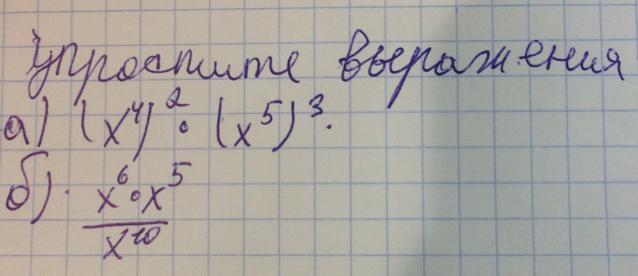 Упростите выражения
а) (x⁴)² • (x⁵)³.
б) x⁶•x⁵ / x¹⁰